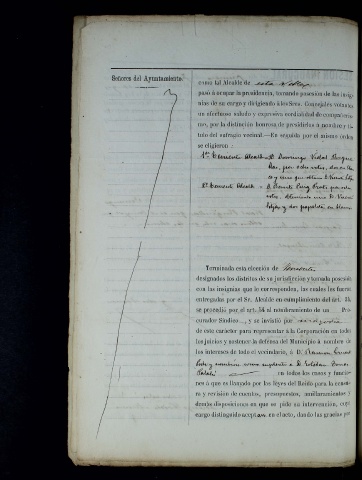 Señores del Ayuntamiento.
como tal Alcalde de esta Villa
pasó á ocupar la presidencia, tomando posesión de las insig-
nias de su cargo y dirigiendo á los Sres. Concejales votantes
un afectuoso saludo y expresiva cordialidad de compañeris-
mo, por la distinción honrosa de presidirlos á nombre y tí-
tulo del sufragio vecinal.—En seguida por el mismo orden
se eligieron:
1er Teniente Alcalde D. Domingo Vidal
por ocho votos,
y uno que obtuvo D.
2º Teniente Alcalde D. Puig por
votos, obteniendo uno D.
y dos papeletas en blanco
Terminada esta elección de Tenientes
designados los distritos de su jurisdicción y tomada posesión
con las insignias que le corresponden, las cuales les fueron
entregadas por el Sr. Alcalde en cumplimiento del art. 55,
se procedió por el art. 56 al nombramiento de un Pro-
curador Síndico, y se invistió por
de este carácter para representar á la Corporación en todos
los juicios y sostener la defensa del Municipio á nombre de
los intereses de todo el vecindario, á D. Ramon
y suplente á D. Esteban
en todos los casos y funcio-
nes á que es llamado por las leyes del Reido para la censu-
ra y revisión de cuentas, presupuestos, amillaramientos y
demás disposiciones en que se pide su intervención, cuyo
cargo distinguido aceptan en el acto, dando las gracias por